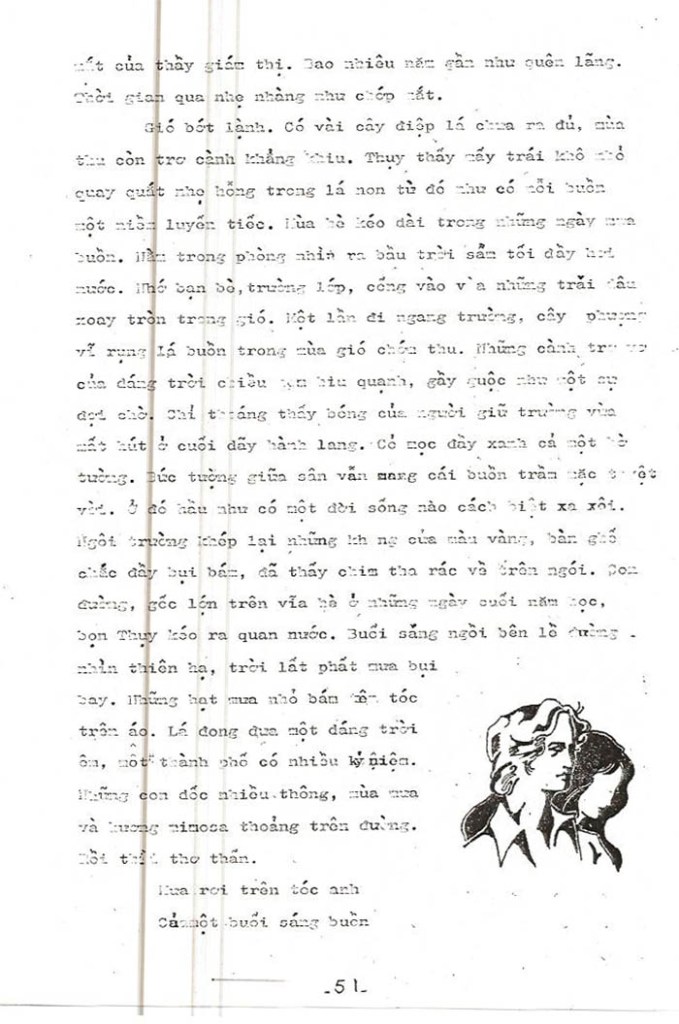 mắt của thầy giám thị. Bao nhiêu năm gần như quên lãng.
Thời gian qua nhẹ nhàng như chớp mắt.
Gió bớt lạnh. Có vài cây điệp lá chưa ra đủ, mùa
thu còn trơ cành khẳng khiu. Thụy thấy mấy trái khô nhỏ
quay quắt nhẹ hỗng trong lá non từ đó như có nỗi buồn
một niềm luyến tiếc. Mùa hè kéo dài trong những ngày mưa
buồn. Nằm trong phòng nhìn ra bầu trời sẫm tối đầy hơi
nước. Nhớ bạn bè, trường lớp, cổng vào và những trái dầu
xoay tròn trong gió. Một lần đi ngang trường, cây phượng
vĩ rụng lá buồn trong mùa gió chớm thu. Những cành trơ vơ
của dáng trời chiều hiu quạnh, gầy guộc như một sự
đợi chờ. Chỉ thoáng thấy bóng của người giữ trường vừa
mất hút ở cuối dãy hành lang. Cỏ mọc đầy xanh cả một bờ
tường. Bức tường giữa sân vẫn mang cái buồn trầm mặc tuyệt
vời. Ở đó hầu như có một đời sống nào cách biệt xa xôi.
Ngôi trường khép lại những kh ng của màu vàng, bàn ghế
chắc đầy bụi bám, đã thấy chim tha rác về trên ngói. Con
đường, gốc lớn trên vĩa hè ở những ngày cuối năm học,
bọn Thụy kéo ra quan nước. Buổi sáng ngồi bên lề đường
nhìn thiên hạ, trời lất phất mưa bụi
bay. Những hạt mưa nhỏ bám trên tóc
trên áo. Lá đong đưa một dáng trời
êm, một thành phố có nhiều kỷ niệm.
Những con dốc nhiều thông, mùa mưa
và hương mimosa thoảng trên đường.
Rồi thơ thẩn.
Mưa rơi trên tóc anh
Cả một buổi sáng buồn
-51-